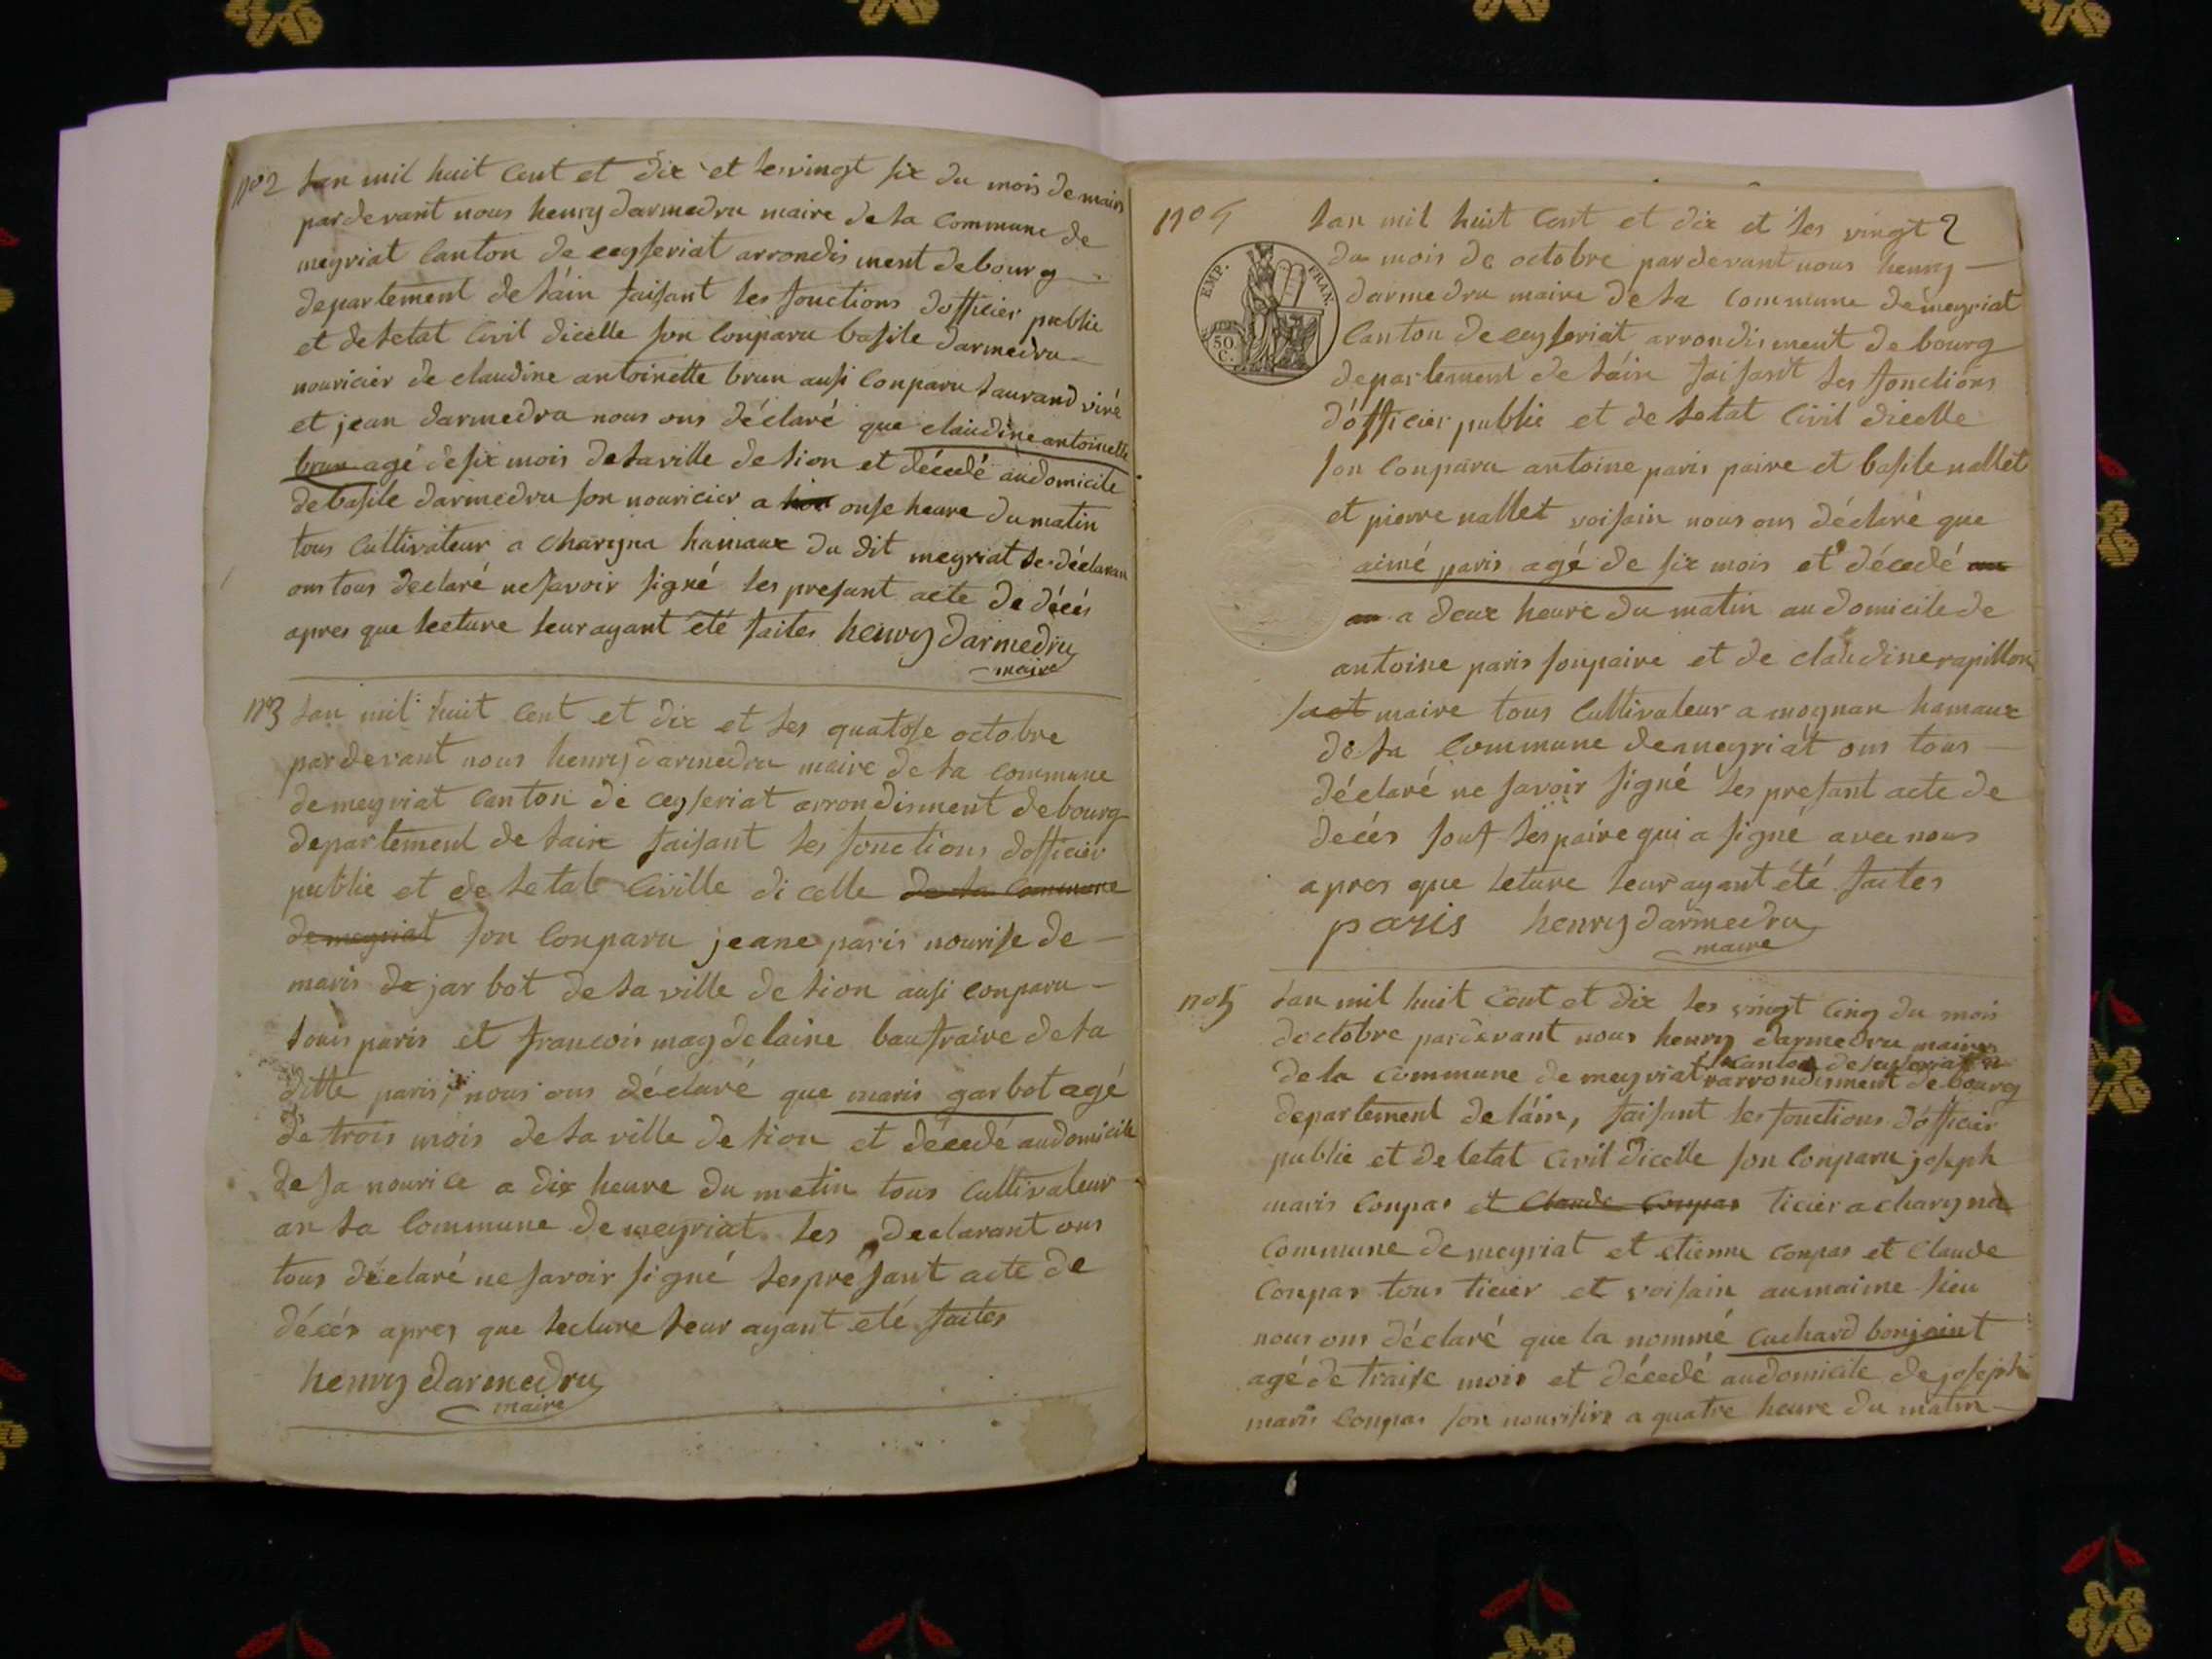 n°2 lan mil huit cent et dix et les vingt six du mois de mairs
pardevant nous henry darmedru maire de la commune de
meyriat canton de ceyseriat arrondis ment de bourg
departement de láin faisant les fonctions dofficier public
et de letat civil dicelle son conparu basile darmedru
nouricier de claudine antoinette brun ausi conparu laurand viré
et jean darmedru nous ons déclaré que claudine antoinette
brun agé de six mois de la ville de lion et décedé au domicile
de basile darmedru son nouricier a onse heure du matin
tous cultivateur a charyna hamaux du dit meyriat le déclaran
ons tous declaré ne savoir signé les presant acte de décés
apres que lecture leur ayant été faites henry darmedru
maire
n°3 lan mil huit cent et dix et les quatose octobre
pardevant nous henry darmedru maire de la commune
de meyriat canton de ceyseriat arrondisment de bourg
departement de lain faisant les fonctions dofficier
public et de letat civille di celle de la commune
de meyriat son conparu jeane paris nourise de
maris de jar bot de la ville de lion ausi conparu
louis paris et francois magdelaine baufraire de la
ditte paris, nous ons déclaré que maris garbot agé
de trois mois de la ville de lion et décedé au domicile
de sa nourice a dix heure du matin tous cultivateur
an la commune de meyriat les declarant ons
tous déclaré ne savoir signé les presant acte de
décés apres que lecture leur ayant eté faites
henry darmedru
maire
n°4 lan mil huit cent et dix et les vingt 2
du mois de octobre pardevant nous henry
darmedru maire de la commune de meyriat
EMP. FRAN.
50. C.
canton de ceyseriat arrondis ment de bourg
departement de láin faisant les fonctions
dófficier public et de letat civil dicelle
son conparu antoine paris paire et basile nallet
et pierre nallet voisain nous ons déclaré que
aimé paris agé de six mois et décedé an
an a deux heure du matin au domicile de
antoine paris son paire et de claudine rapillon
sa et maire tous cultivateur a mognan hamaux
de la commune de meyriat ons tous
déclaré ne savoir signé les presant acte de
decés souf les paire qui a signé avec nous
apres que leture leur ayant été faites
paris henry darmedru
maire
n°5 lan mil huit cent et dix les vingt cinq du mois
doctobre pardevant nous henry darmedru maire
canton de
de la commune de meyriat arrondisment de bourg
departement de láin, faisant les fonctions dófficier
public et de letat civil dicelle son conparu joseph
maris conpas et claude conpas ticier a charyna
commune de meyriat et etienne conpas et claude
conpas tous ticier et voisain au maime lieu
nous ons déclaré que la nommé cuchard bonjoint
agé de traise mois et décedé au domicile de joseph
maris conpas son nourisire a quatre heure du matin